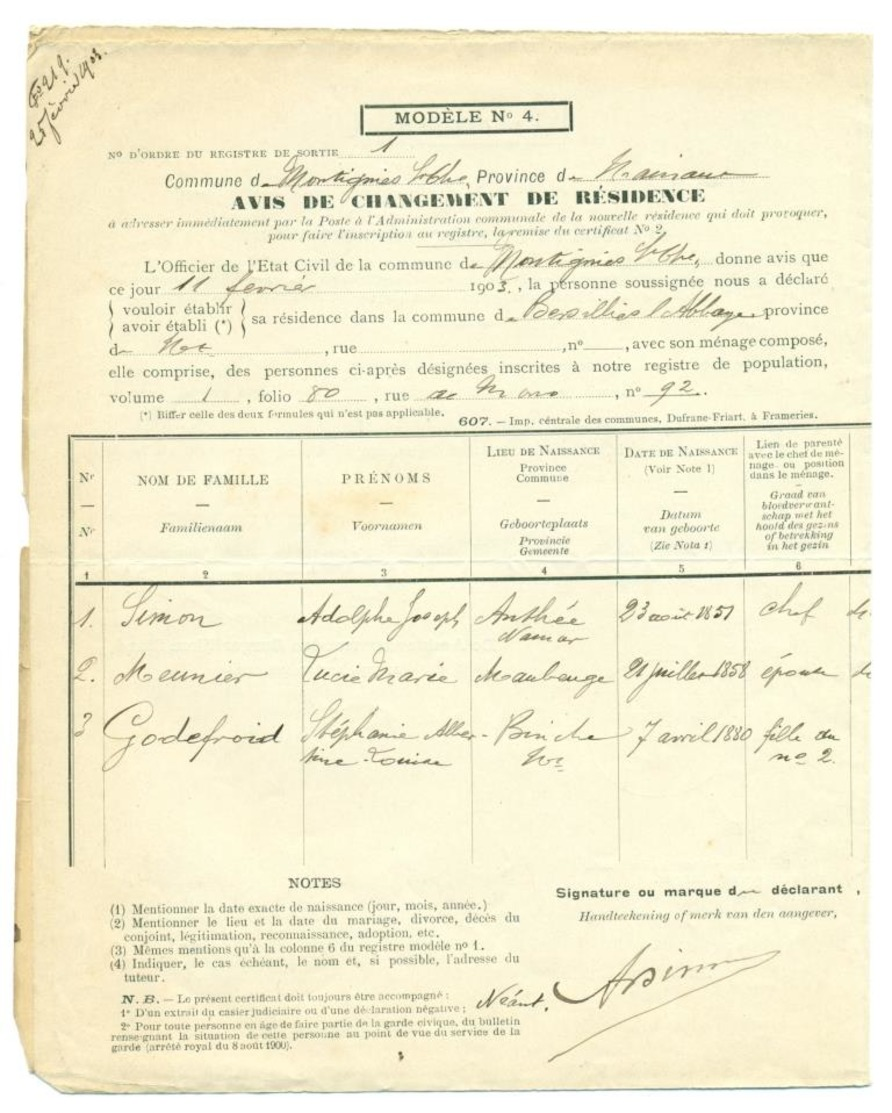 Fo 219.
25 février 1903.
MODÈLE No 4.
No D'ORDRE DU REGISTRE DE SORTIE 1
Commune de Montignies St Chr., Province de Hainaut
AVIS DE CHANGEMENT DE RÉSIDENCE
à adresser immédiatement par la Poste à l'Administration communale de la nouvelle résidence qui doit provoquer,
pour faire l'inscription au registre, la remise du certificat No 2.
L'Officier de l'Etat Civil de la commune de Montignies St Chr., donne avis que
ce jour 11 février 1903, la personne soussignée nous a déclaré
vouloir établir
avoir établi (*) sa résidence dans la commune de Bersillies l'Abbaye province
de Ht , rue , no , avec son ménage composé,
elle comprise, des personnes ci-après désignées inscrites à notre registre de population,
volume 1 , folio 80 , rue de Mons , no 92.
(*) Biffer celle des deux formules qui n'est pas applicable.
607. — Imp. centrale des communes, Dufrane-Friart, à Frameries.
Nr — Nr
NOM DE FAMILLE — Familienaam
PRÉNOMS — Voornamen
LIEU DE NAISSANCE Province Commune — Geboorteplaats Provincie Gemeente
DATE DE NAISSANCE (Voir Note 1) — Datum van geboorte (Zie Nota 1)
Lien de parenté avec le chef de ménage ou position dans le ménage. — Graad van bloedverwantschap met het hoofd des gezins of betrekking in het gezin
1 2 3 4 5 6
1. Simon Adolphe Joseph Anthée 23 août 1851 chef
Namur
2. Meunier Lucie Marie Maubeuge 21 juillet 1858 épouse
3 Godefroid Stéphanie Alber- Binche 7 avril 1880 fille du
tine Louise Ht no 2.
NOTES
(1) Mentionner la date exacte de naissance (jour, mois, année.)
(2) Mentionner le lieu et la date du mariage, divorce, décès du
conjoint, légitimation, reconnaissance, adoption, etc.
(3) Mêmes mentions qu'à la colonne 6 du registre modèle no 1.
(4) Indiquer, le cas échéant, le nom et, si possible, l'adresse du
tuteur.
N. B. — Le présent certificat doit toujours être accompagné :
1° D'un extrait du casier judiciaire ou d'une déclaration négative ; Néant.
2° Pour toute personne en âge de faire partie de la garde civique, du bulletin
renseignant la situation de cette personne au point de vue du service de la
garde (arrêté royal du 8 août 1900).
Signature ou marque du déclarant ,
Handteekening of merk van den aangever,
ASimon